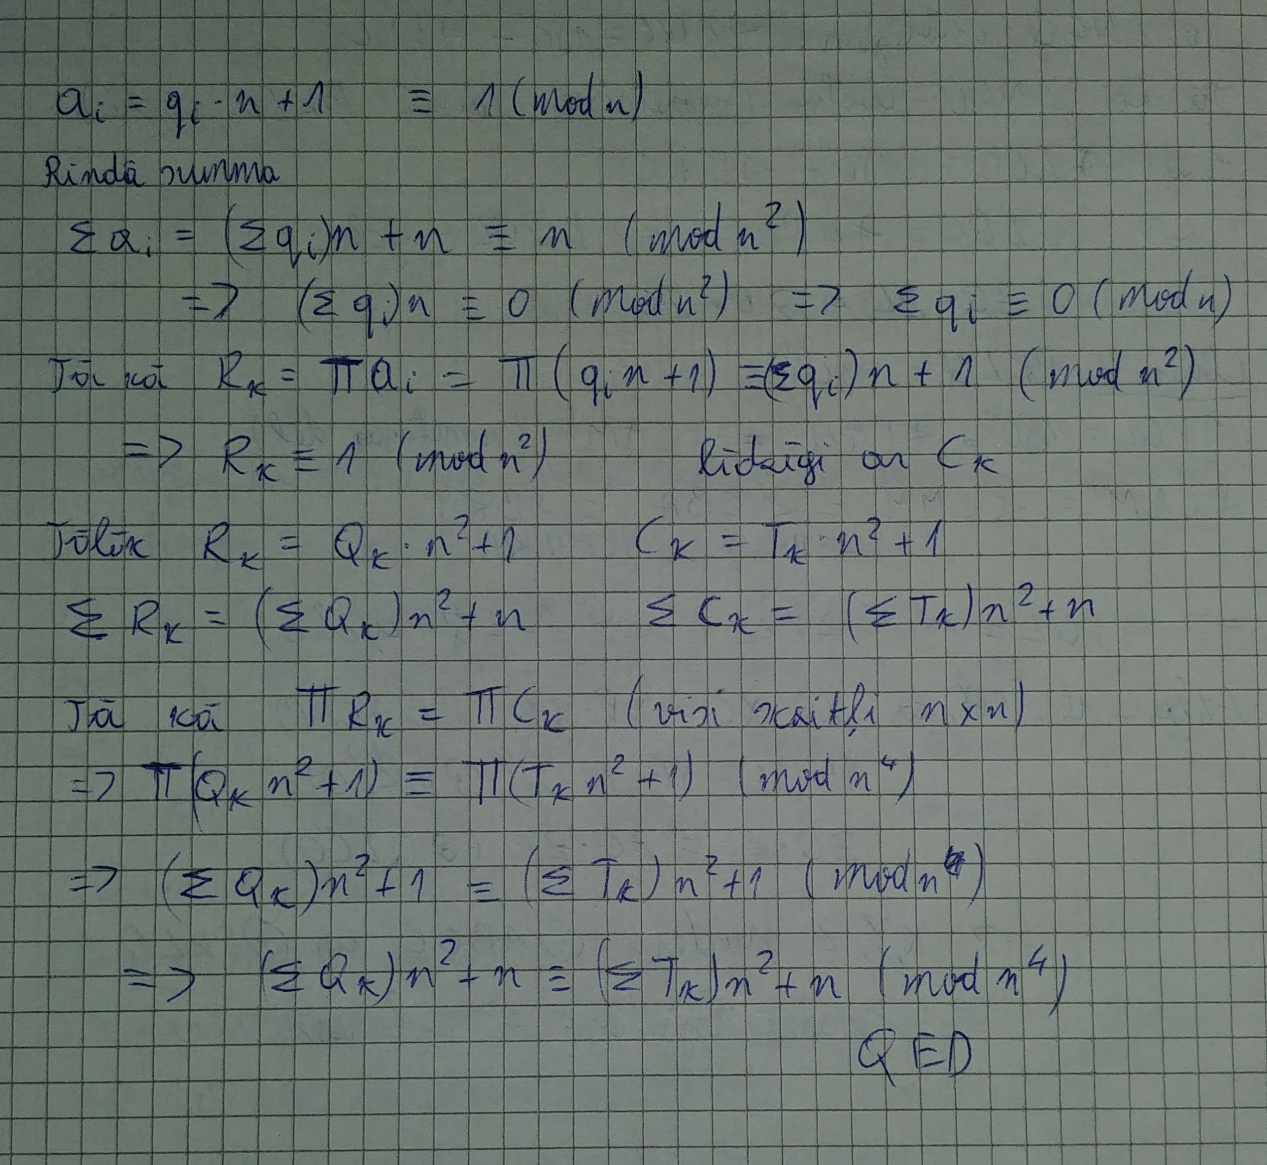 a_i = q_i · n + 1 ≡ 1 (mod n)
Rindā summa
Σ a_i = (Σ q_i)n + n ≡ n (mod n²)
=> (Σ q_i)n ≡ 0 (mod n²) => Σ q_i ≡ 0 (mod n)
Tā kā R_k = Π a_i = Π (q_i n + 1) ≡ (Σ q_i)n + 1 (mod n²)
=> R_k ≡ 1 (mod n²) līdzīgi ar C_k
Tālāk R_k = Q_k · n² + 1 C_k = T_k · n² + 1
Σ R_k = (Σ Q_k)n² + n Σ C_k = (Σ T_k)n² + n
Tā kā Π R_k = Π C_k (visi skaitļi n x n)
=> Π(Q_k n² + 1) ≡ Π(T_k n² + 1) (mod n⁴)
=> (Σ Q_k)n² + 1 ≡ (Σ T_k)n² + 1 (mod n⁴)
=> (Σ Q_k)n² + n ≡ (Σ T_k)n² + n (mod n⁴)
QED